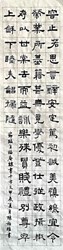 容止若思言辭安定篤初誠美慎終宜令
榮業所基籍甚無竟學優登仕攝職從政
存以甘棠去而益詠樂殊貴賤禮別尊卑
上和下睦夫唱婦隨